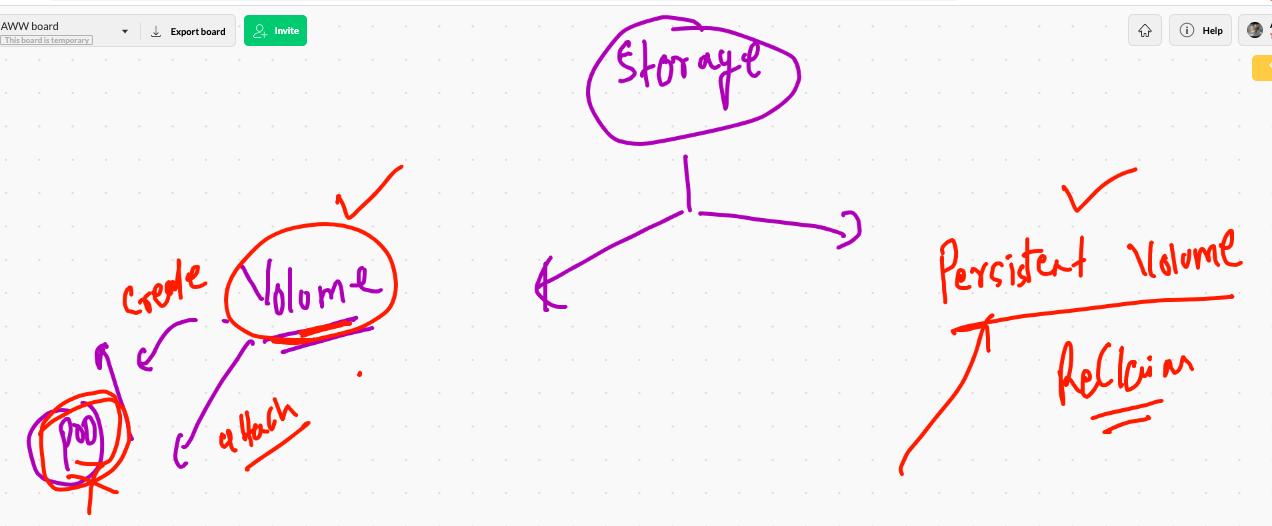 AWW board
This board is temporary
Export board
Invite
Help
Storage
Volume
create
attach
POD
Persistent Volume
Reclaim